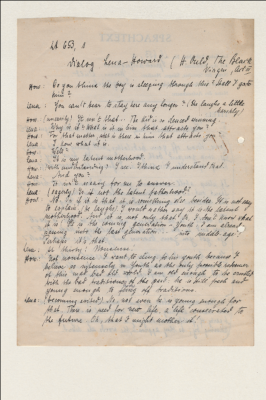 Dialog Lena-Howard (H. Ould, The Black
Virgin, Act II
How: Do you think the boy is sleeping through this? Shall I go to
him?
Lena: You can't bear to stay here any longer? (She laughs a little
How: It isn't that. The kid is almost
Lena: Why is it? What is it in him that attracts you?
How: For that matter what is there in him that attracts you?
Lena: I know what it is.
How: Well?
Lena: It is my latent motherhood.
How: (with understanding) I see. I think I understand that.
Lena: And you?
How: It isn't so easy for me to answer.
Lena: (eagerly) Is it not the latent fatherhood?
How: No. Or if it is that it is something else besides. It is not easy
to explain it exactly. I could see it is the latent
motherhood. And it is not only that. I don't know what
it is. It is the coming generation - Youth. I am already
the last generation - into middle age.
Perhaps it's that.
Lena: Nonsense.
How: Not nonsense. I want to cling to his youth because I
believe so in Youth as the only possible redeemer
of this sad old world. I am old enough to be
with the bad of the past. He is still fresh and
young enough to fling off traditions
Lena: (becoming excited) No, not even he is young enough for
that. There is need for new life, a life consecrated to
the future. Oh, that I might mother it!